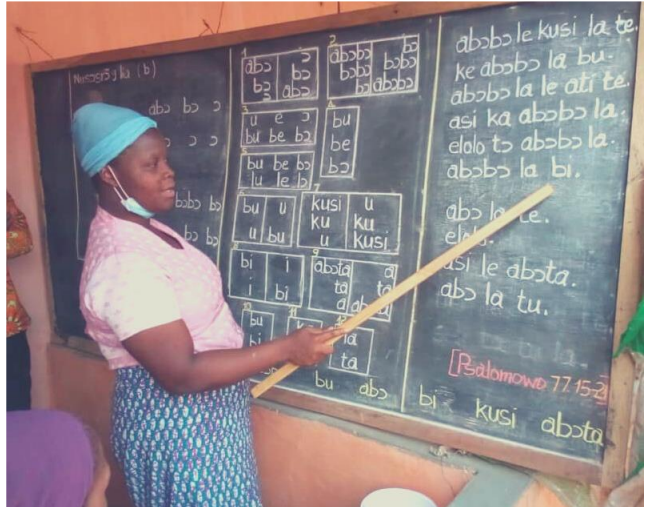 Nusɔsrɔ̃
(b)
abɔ bɔ ɔ
ɔ ɔ
bɔbɔ bɔ
bɔ bɔ
1
abɔ ɔ
bɔ bɔ
ɔ abɔ
2
abɔbɔ bɔ
bɔbɔ bɔbɔ
bɔ abɔbɔ
3
u e ɔ
bu be bɔ
4
bu
be
bɔ
5
bu be bɔ
lu le lɔ
6
bu u
u bu
7
kusi u
ku ku
u kusi
8
bi i
i bi
9
abɔta a
ta ta
a abɔta
10
bu
bi
11
ta
abɔbɔ le kusi la te.
ke abɔbɔ la bu.
abɔbɔ la le ati te.
asi ka abɔbɔ la.
elolo tɔ abɔbɔ la.
abɔbɔ la bi.
abɔ la te.
elolo.
asi le abɔta.
abɔ la tu.
[Psalomowo 77.15-2
bu abɔ bi kusi abɔta